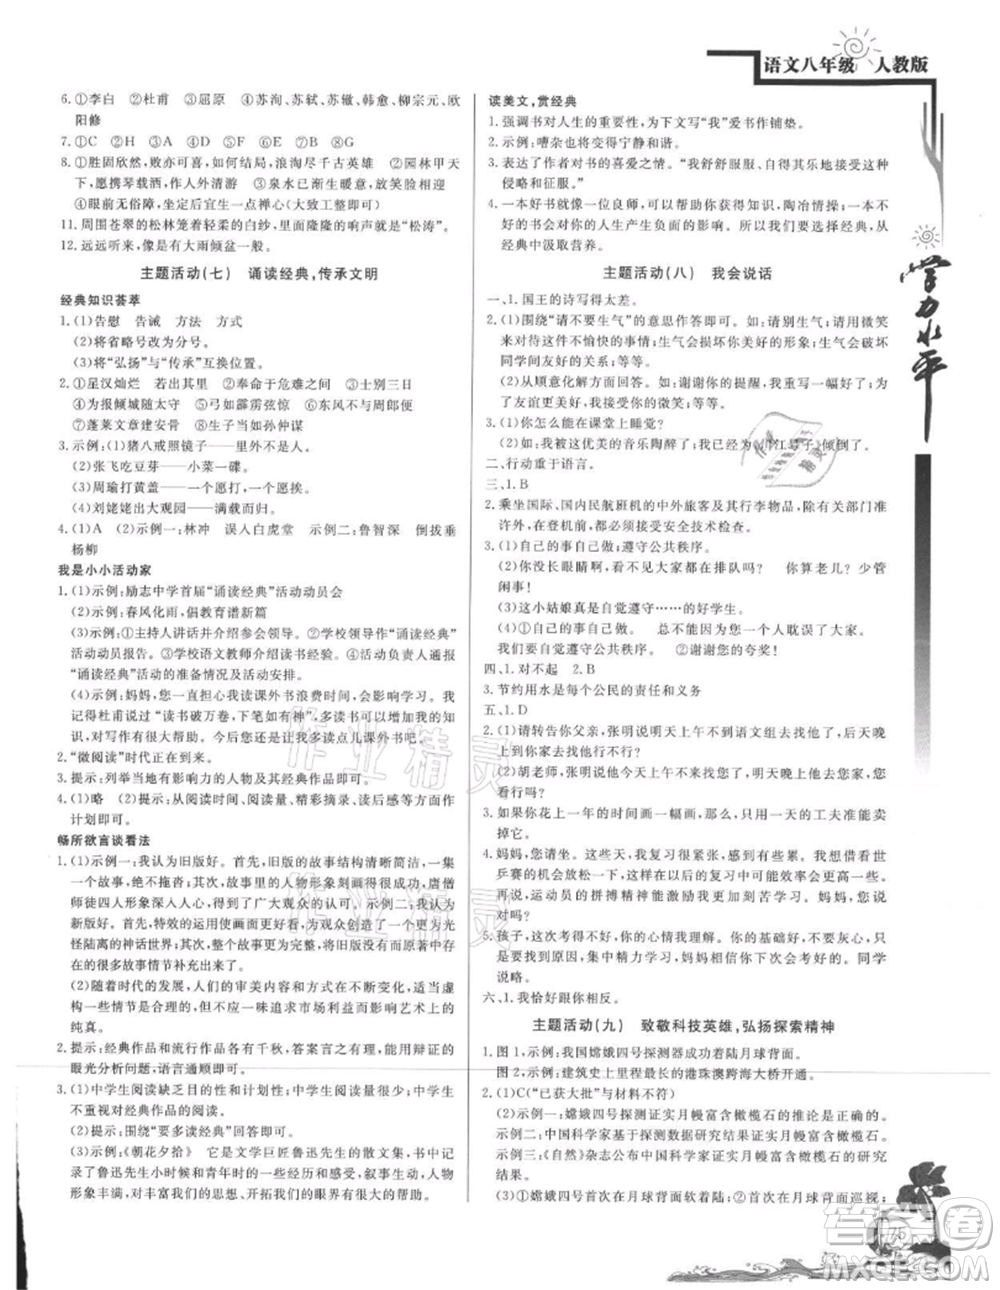 语文八年级 人教版
6. ①李白 ②杜甫 ③屈原 ④苏洵、苏轼、苏辙、韩愈、柳宗元、欧
阳修
7. ①C ②H ③A ④D ⑤E ⑥F ⑦B ⑧G
8. ①胜固欣然,败亦可喜,如何结局,浪淘尽千古英雄 ②园林甲天
下,携琴载酒,作人外清游 ③泉水已渐生暖意,放笑脸相迎
④眼前无俗障,坐定后宜生一点禅心(大致工整即可)
11. 周围苍翠的松林笼着轻柔的白纱,里面隆隆的响声就是“松涛”。
12. 远远听来,像是有大雨倾盆一般。
主题活动(七) 诵读经典,传承文明
经典知识荟萃
1. (1)告慰 告诫 方法 方式
(2)将省略号改为分号。
(3)将“弘扬”与“传承”互换位置。
2. ①星汉灿烂 若出其里 ②奉命于危难之间 ③士别三日
④为报倾城随太守 ⑤弓如霹雳弦惊 ⑥东风不与周郎便
⑦蓬莱文章建安骨 ⑧生子当如孙仲谋
3. 示例:(1)猪八戒照镜子——里外不是人。
(2)张飞吃豆芽——小菜一碟。
(3)周瑜打黄盖——一个愿打,一个愿挨。
(4)刘姥姥出大观园——满载而归。
4. (1)A (2)示例一:林冲 误入白虎堂 示例二:鲁智深 倒拔垂
杨柳
我是小小活动家
1. (1)示例:励志中学首届“诵读经典”活动动员会
(2)示例:春风化雨,倡教育谱新篇
(3)示例:①主持人讲话并介绍参会领导。②学校领导做“诵读经典”
活动动员报告。③学校语文教师介绍读书经验。④活动负责人介绍
“诵读经典”活动的准备情况及活动安排。
(4)示例:妈妈,您担心我读课外书浪费时间,我很理解。但是,我
记得杜甫说过“读书破万卷,下笔如有神”,多读课外书,增长知
识,对写作有很大的帮助,您就让我多读点儿课外书吧。
2. “微阅读”时代正在到来。
3. 提示:列举当地有影响力的人物及其经典作品即可。
4. (1)略 (2)提示:从阅读时间、精彩摘录、读后感、阅读
计划即可。
畅所欲言谈看法
1. (1)示例一:我认为旧版好。首先,旧版的故事结构清晰简洁,一集
一个故事,内容通俗易懂;其次,旧版的人物形象刻画得很好,唐僧
师徒四人形象深入人心,得到了广大观众的认可 示例二:我认为新
版好。首先,新版特效的运用使画面更真实,为观众创造了一个光
怪陆离的神话世界;其次,整个故事更丰富,将旧版没有而原著中存
在的故事情节补充了进来。
(2)随着时代的发展,人们的审美内容和方式在不断变化,适度调
整一些情节是可以的,但不应一味追求市场利益而影响艺术上的
纯真。
2. 提示:经典作品和流行作品各有千秋,答案言之有理即可,要用辩证的
眼光分析问题,语言通顺即可。
3. (1)中学生阅读缺乏目的性和计划性;中学生阅读量不够;中学生
不重视对经典作品的阅读。
(2)提示:围绕“要多读经典”回答即可。
(3)示例:《朝花夕拾》 它是文学巨匠鲁迅先生的散文集,书中记
录了鲁迅先生小时候和青年时的一些经历和感想,叙事生动,人物
形象丰满,对丰富我们的思想、开拓我们的眼界有很大的帮助。
读美文,赏经典
1. 强调书对人生的重要性,为下文写“我”爱书作铺垫。
2. 示例:嘈杂也将变得宁静和谐。
3. 表达了作者对书的喜爱之情。“我舒舒服服、自自然然地接受这种
侵略和征服。”
4. 一本好书就像一位良师,可以帮助你获得知识,陶冶情操;一本不
好的书会对你的人生产生负面的影响。所以我们要选择经典,从
经典中汲取营养。
学力水平
主题活动(八) 我会说话
一、1. 国王的诗写得太差。
2. (1)围绕“请不要生气”的意思作答即可。如:请别生气;请用微笑
来对待这件不愉快的事情;生气会损害您美好的形象;生气会影响
同学间友好的关系;等等。
(2)从顺意化解方面回答。如:谢谢你的提醒,我刚才声音太大了;为
了友谊更美好,我们需要你的微笑;等等。
3. (1)你怎么能在课堂上睡觉?
(2)如:我被这优美的音乐陶醉了!
二、行动重于语言。
三、1. B
2. 乘坐国际、国内民航班机的中外旅客及其行李物品,除经特别准
许外,在登机前都必须接受安全技术检查。
3. (1)自己的事自己做;遵守公共秩序。
(2)你没长眼睛吗?没看见大家都在排队吗? 你算老几?少管
闲事!
(3)这小姑娘真是自觉遵守……的好学生。
(4)①自己的事自己做! 不能因为你一个人耽误了大家。
我们要自觉遵守公共秩序。 ②谢谢您的夸奖!
四、1. 对不起 2. B
3. 节约用水是每个公民的责任和义务
五、1. D
2. (1)请转告你父亲,张明说他明天上午不到语文组去了,后天晚
上到我家去找他行不行?
(2)胡老师,张明说他明天上午不到语文组去了,后天晚上到你家
去找你行吗?
3. 如果你花上一年的时间画一幅画,那么,只用一天的工夫就能卖
掉它。
4. 妈妈,您请坐。这些天,我复习很紧张,感到很疲劳。想看看世
乒赛来放松一下,这样在以后的复习中可能效率会更高一些。再
说,运动员的拼搏精神能激励我更加刻苦学习。妈妈,您说
对吗?
5. 孩子,这次没考好,你的心情我很理解。你的基础好,不要灰心,只
要找到原因,集中精力学习,妈妈相信下次你一定会考好。同学
说略。
六、1. 我恰好跟你相反。
主题活动(九) 致敬科技英雄,弘扬探索精神
1. 图 1,示例:我国嫦娥四号探测器成功着陆月球背面。
图 2,示例:建筑史上里程最长的港珠澳跨海大桥开通。
2. (1)C(“已获大批”与材料不符)
(2)示例一:嫦娥四号探测证实月幔富含橄榄石的推论是正确的。
示例二:中国科学家基于探测数据研究结果证实月幔富含橄榄石。
示例三:《自然》杂志公布中国科学家证实月幔富含橄榄石的研究
结果。
(3)①嫦娥四号实现在月球背面软着陆;②首次在月球背面巡视;
作业精灵
作业精灵
答案圈